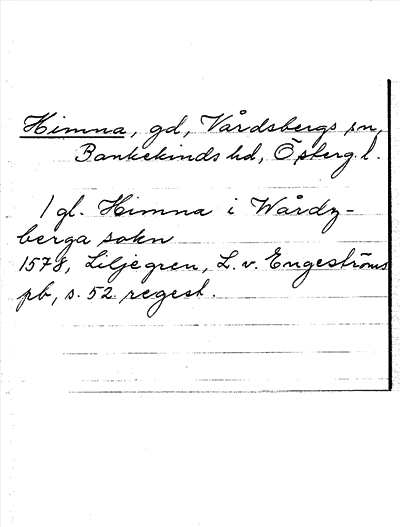 Himna, gd, Vårdsbergs sn,
Bankekinds hd, Östergl.
1 gl. Himna i Wårdz-
berga sokn
1578, Liljegren, L. v. Engeströms
pb, s. 52 regest.